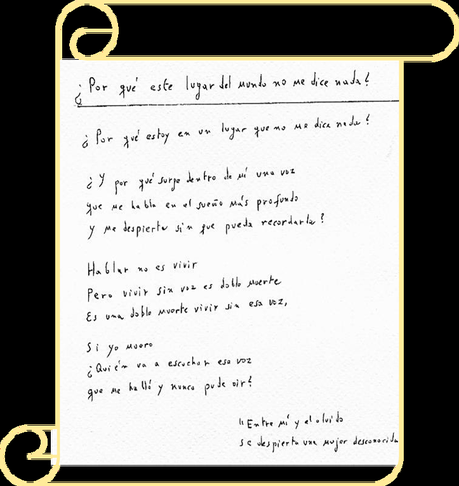 ¿Por qué este lugar del mundo no me dice nada?
¿Por qué estoy en un lugar que no me dice nada?
¿Y por qué surge dentro de mí una voz
que me habla en el sueño más profundo
y me despierta sin que pueda recordarla?
Hablar no es vivir
Pero vivir sin voz es doble muerte
Es una doble muerte vivir sin esa voz,
Si yo muero
¿Quién va a escuchar esa voz
que me halló y nunca pude oir?
"Entre mí y el olvido
se despierta una mujer desconocida